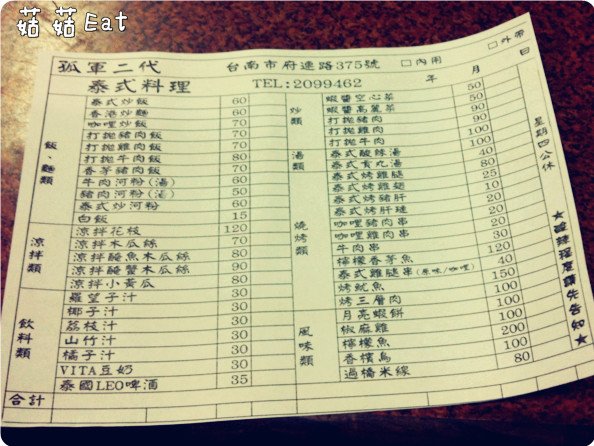 菇菇Eat
孤軍二代 泰式料理
台南市府連路375號 □內用 □外帶
TEL:2099462 年 月 日
飯、麵類
泰式炒飯 60
香港炒麵 60
咖哩炒飯 70
打拋豬肉飯 70
打拋雞肉飯 70
打拋牛肉飯 80
香茅豬肉飯 70
牛肉河粉(湯) 60
豬肉河粉(湯) 50
泰式炒河粉 60
白飯 15
涼拌類
涼拌花枝 120
涼拌木瓜絲 70
涼拌醃魚木瓜絲 80
涼拌醃蟹木瓜絲 90
涼拌小黃瓜 80
飲料類
羅望子汁 30
椰子汁 30
荔枝汁 30
山竹汁 30
橘子汁 30
VITA豆奶 30
泰國LEO啤酒 35
合計
炒類
蝦醬空心菜 50
蝦醬高麗菜 50
打拋豬肉 90
打拋雞肉 90
打拋牛肉 100
湯類
泰式酸辣湯 100
泰式貢丸湯 40
燒烤類
泰式烤雞腿 80
泰式烤雞翅 25
泰式烤豬肝
泰式烤肝璉
咖哩豬肉串
咖哩雞肉串
牛肉串 30
檸檬香茅魚 120
泰式雞腿串(原味/咖哩) 40
烤魷魚 150
烤三層肉 100
月亮蝦餅 100
風味類
椒麻雞 100
檸檬魚 200
香檳鳥 100
過橋米線 80
星期四公休
★酸辣程度請先告知★